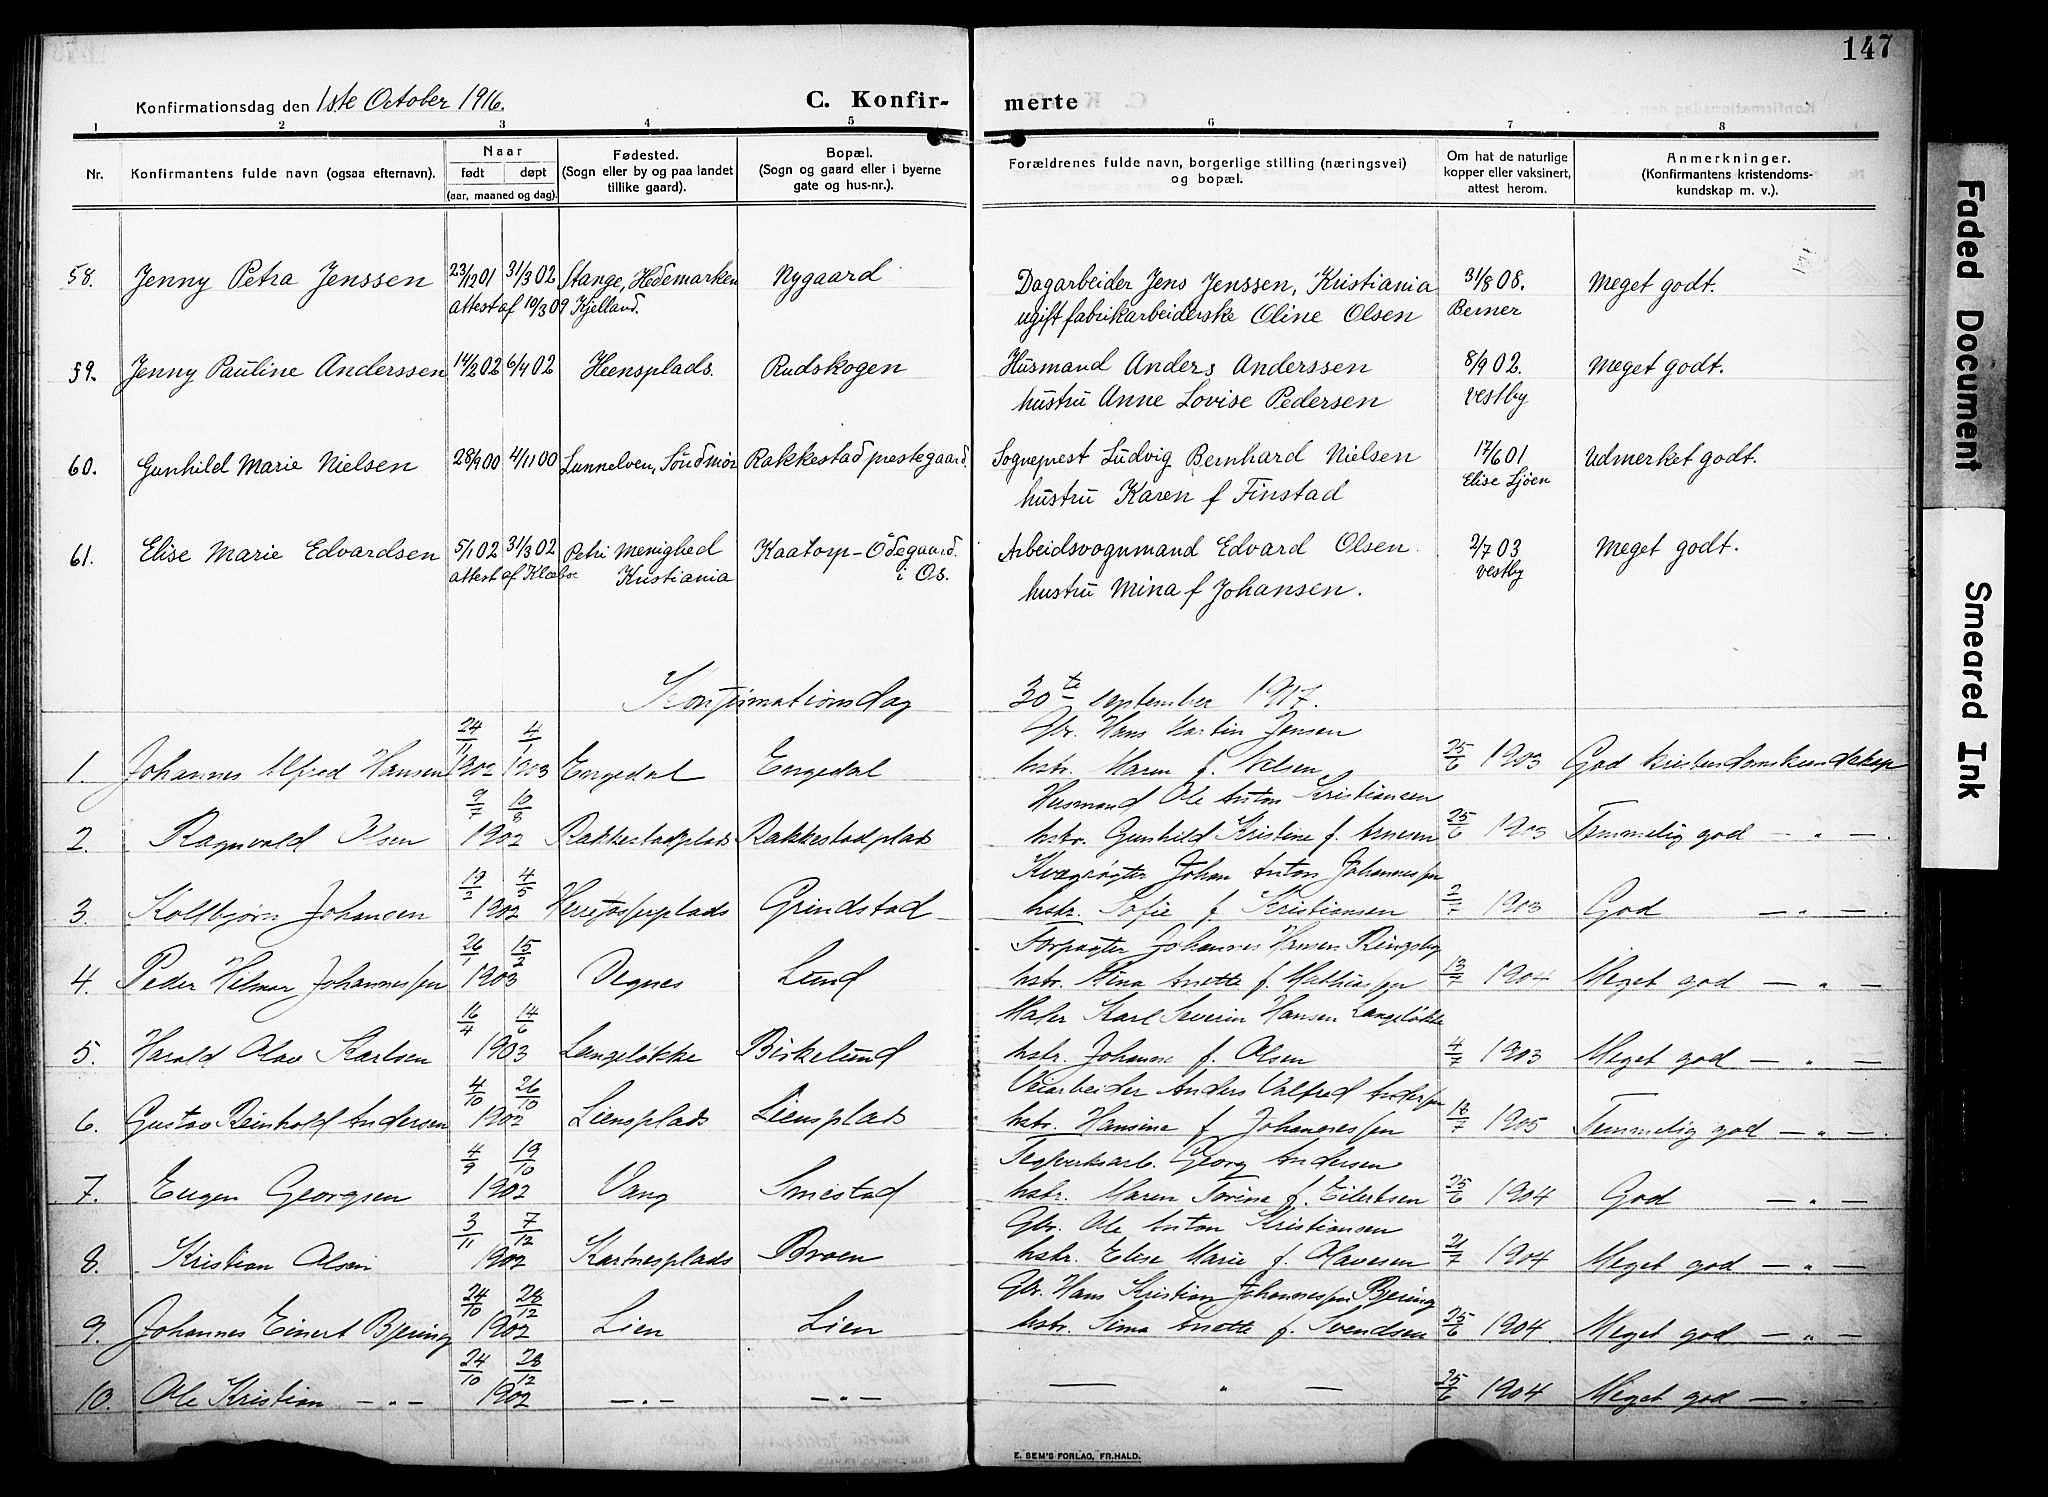 147
Konfirmationsdag den 1ste October 1916.
C. Konfir-
merte
1 2 3 4 5 6 7 8
Nr.
Konfirmantens fulde navn (ogsaa efternavn).
Naar
født døpt
(aar, maaned og dag).
Fødested.
(Sogn eller by og paa landet
tillike gaard).
Bopæl.
(Sogn og gaard eller i byerne
gate og hus-nr.).
Forældrenes fulde navn, borgerlige stilling (næringsvei)
og bopæl.
Om hat de naturlige
kopper eller vaksinert,
attest herom.
Anmerkninger.
(Konfirmantens kristendoms-
kundskap m. v.).
58. Jenny Petra Jenssen 23/12 01 31/3 02 Stange, Hedemarken Nygaard Dagarbeider Jens Jenssen, Kristiania 31/8 08. Meget godt.
attest af 10/3 09 Kjelland. ugift fabrikarbeiderske Oline Olsen Berner
59. Jenny Pauline Anderssen 14/2 02 6/4 02 Heensplads. Rudskogen Husmand Anders Anderssen 8/9 02. Meget godt.
hustru Anne Lovise Pedersen Vestby
60. Gunhild Marie Nielsen 28/9 00 4/11 00 Sunnelven, Söndmör Rakkestad prestegaard Sogneprest Ludvig Bernhard Nielsen 17/6 01 Udmerket godt.
hustru Karen f Finstad Elise Sjöen
61. Elise Marie Edvardsen 5/1 02 31/3 02 Petri Menighed Kaatorp-Ödegaard. Arbeidsvognmand Edvard Olsen. 2/7 03 Meget godt.
attest af Klæboe Kristiania i Os. hustru Mina f Johansen. Vestby
Konfirmationsdag 30te september 1917.
24/11 4/1 Gbr. Hans Martin Jensen
1. Johannes Alfred Hansen 1902 1903 Engedal Engedal hstr. Maren f. Nilsen 25/6 1903 God kristendomskundskap
9/7 10/8 Husmand Ole Anton Kristiansen
2. Ragnvald Olsen 1902 Rakkestadplads Rakkestadplads hstr. Gunhild Kristine f. Arnesen 25/6 1903 Temmelig god — " —.
19/2 4/5 Kvægrøgter Johan Anton Johannessen
3. Kolbjørn Johansen 1902 Grindstad hstr. Sofie f Kristiansen 2/7 1903 God — " —.
26/1 15/2 Forpagter Johannes Hansen Ringsby
4. Peder Hilmar Johannessen 1903 Degnes Lund hstr. Mina Anette f. Mathiassen 13/7 1904 Meget god — " —
16/4 14/6 Maler Karl Severin Hansen Langeløkke
5. Harald Olav Karlsen 1903 Langeløkke Birkelund hstr. Johanne f. Olsen 4/7 1903 Meget god — " —
4/10 26/10 Veiarbeider Anders Valfred Anderssen
6. Gustav Reinhold Andersen 1902 Liensplads Liensplads hstr. Hansine f Johannessen 18/7 1905 Temmelig god — " —.
4/9 19/10 Teglverksarb. Georg Andersen
7. Eugen Georgsen 1902 Vang Smestad hstr. Maren Torina f. Eilertsen 25/6 1904 God — " —
3/11 7/12 Gbr. Ole Anton Kristiansen
8. Kristian Olsen 1902 Kartnesplads Broen hstr. Elise Marie f. Olavesen 21/7 1904 Meget god — " —
24/10 28/12 Gbr. Hans Kristian Johannessen Bjering
9. Johannes Einert Bjering 1902 Lien Lien hstr. Sina Anette f Svendsen 25/6 1904. Meget god — " —
24/10 28/12
10. Ole Kristian — " — 1902 — " — — " — — " — 25/6 1904 Meget god — " —.
E. SEM'S FORLAG, FR.HALD.
Faded Document
Smeared Ink